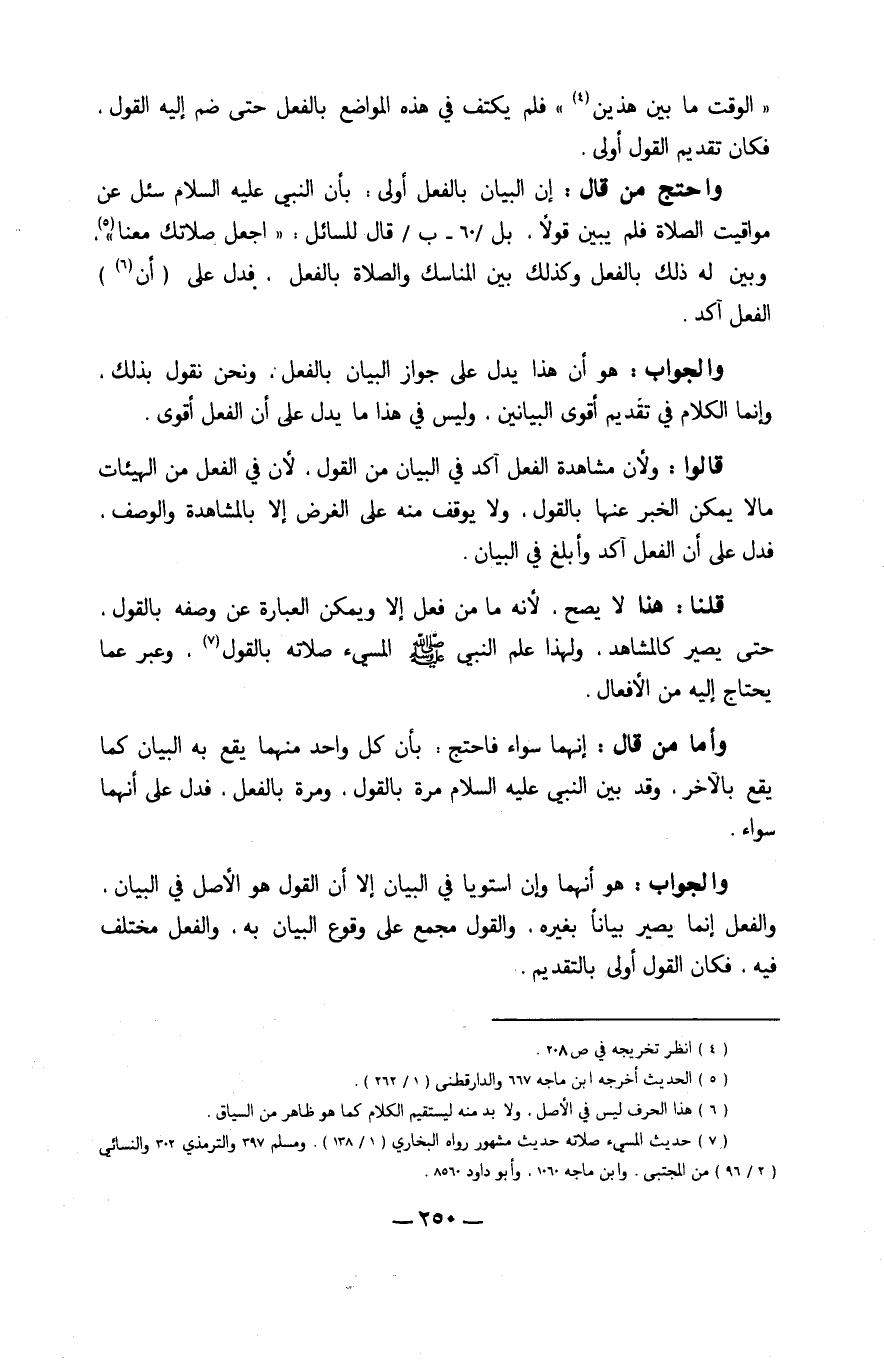 « الوقت ما بين هذين(٤) » فلم يكتف في هذه المواضع بالفعل حتى ضم إليه القول ،
فكان تقديم القول أولى .
واحتج من قال : إن البيان بالفعل أولى : بأن النبي عليه السلام سئل عن
مواقيت الصلاة فلم يبين قولاً ، بل /٦٠ ـ ب / قال للسائل : « اجعل صلاتك معنا»(٥)،
وبين له ذلك بالفعل وكذلك بين المناسك والصلاة بالفعل ، فدل على ( أن(٦) )
الفعل آكد .
والجواب : هو أن هذا يدل على جواز البيان بالفعل ، ونحن نقول بذلك ،
وإنما الكلام في تقَديم أقوى البيانين ، وليس في هذا ما يدل على أن الفعل أقوى .
قالوا : ولأن مشاهدة الفعل آكد في البيان من القول ، لأن في الفعل من الهيئات
مالا يمكن الخبر عنها بالقول ، ولا يوقف منه على الغرض إلا بالمشاهدة والوصف ،
فدل على أن الفعل آكد وأبلغ في البيان .
قلنا : هنا لا يصح ، لأنه ما من فعل إلا ويمكن العبارة عن وصفه بالقول ،
حتى يصير كالمشاهد ، ولهذا علم النبي ﷺ المسيء صلاته بالقول(٧) ، وعبر عما
يحتاج إليه من الأفعال .
وأما من قال : إنهما سواء فاحتج : بأن كل واحد منهما يقع به البيان كما
يقع بالآخر ، وقد بين النبي عليه السلام مرة بالقول ، ومرة بالفعل ، فدل على أنهما
سواء .
والجواب : هو أنهما وإن استويا في البيان إلا أن القول هو الأصل في البيان ،
والفعل إنما يصير بياناً بغيره ، والقول مجمع على وقوع البيان به ، والفعل مختلف
فيه ، فكان القول أولى بالتقديم .
( ٤ ) انظر تخريجه في ص٢٠٨ .
( ٥ ) الحديث أخرجه ابن ماجه ٦٦٧ والدارقطنى ( ١ / ٢٦٢ ) .
( ٦ ) هذا الحرف ليس في الأصل ، ولا بد منه ليستقيم الكلام كما هو ظاهر من السياق .
( ٧ ) حديث المسيء صلاته حديث مشهور رواه البخاري ( ١ / ١٣٨ ) ، ومسلم ٣٩٧ والترمذي ٣٠٢ والنسائي
( ٢ / ٩٦ ) من المجتبى ، وابن ماجه ١٠٦٠ ، وأبو داود ٨٥٦٠ .
— ٢٥٠ —